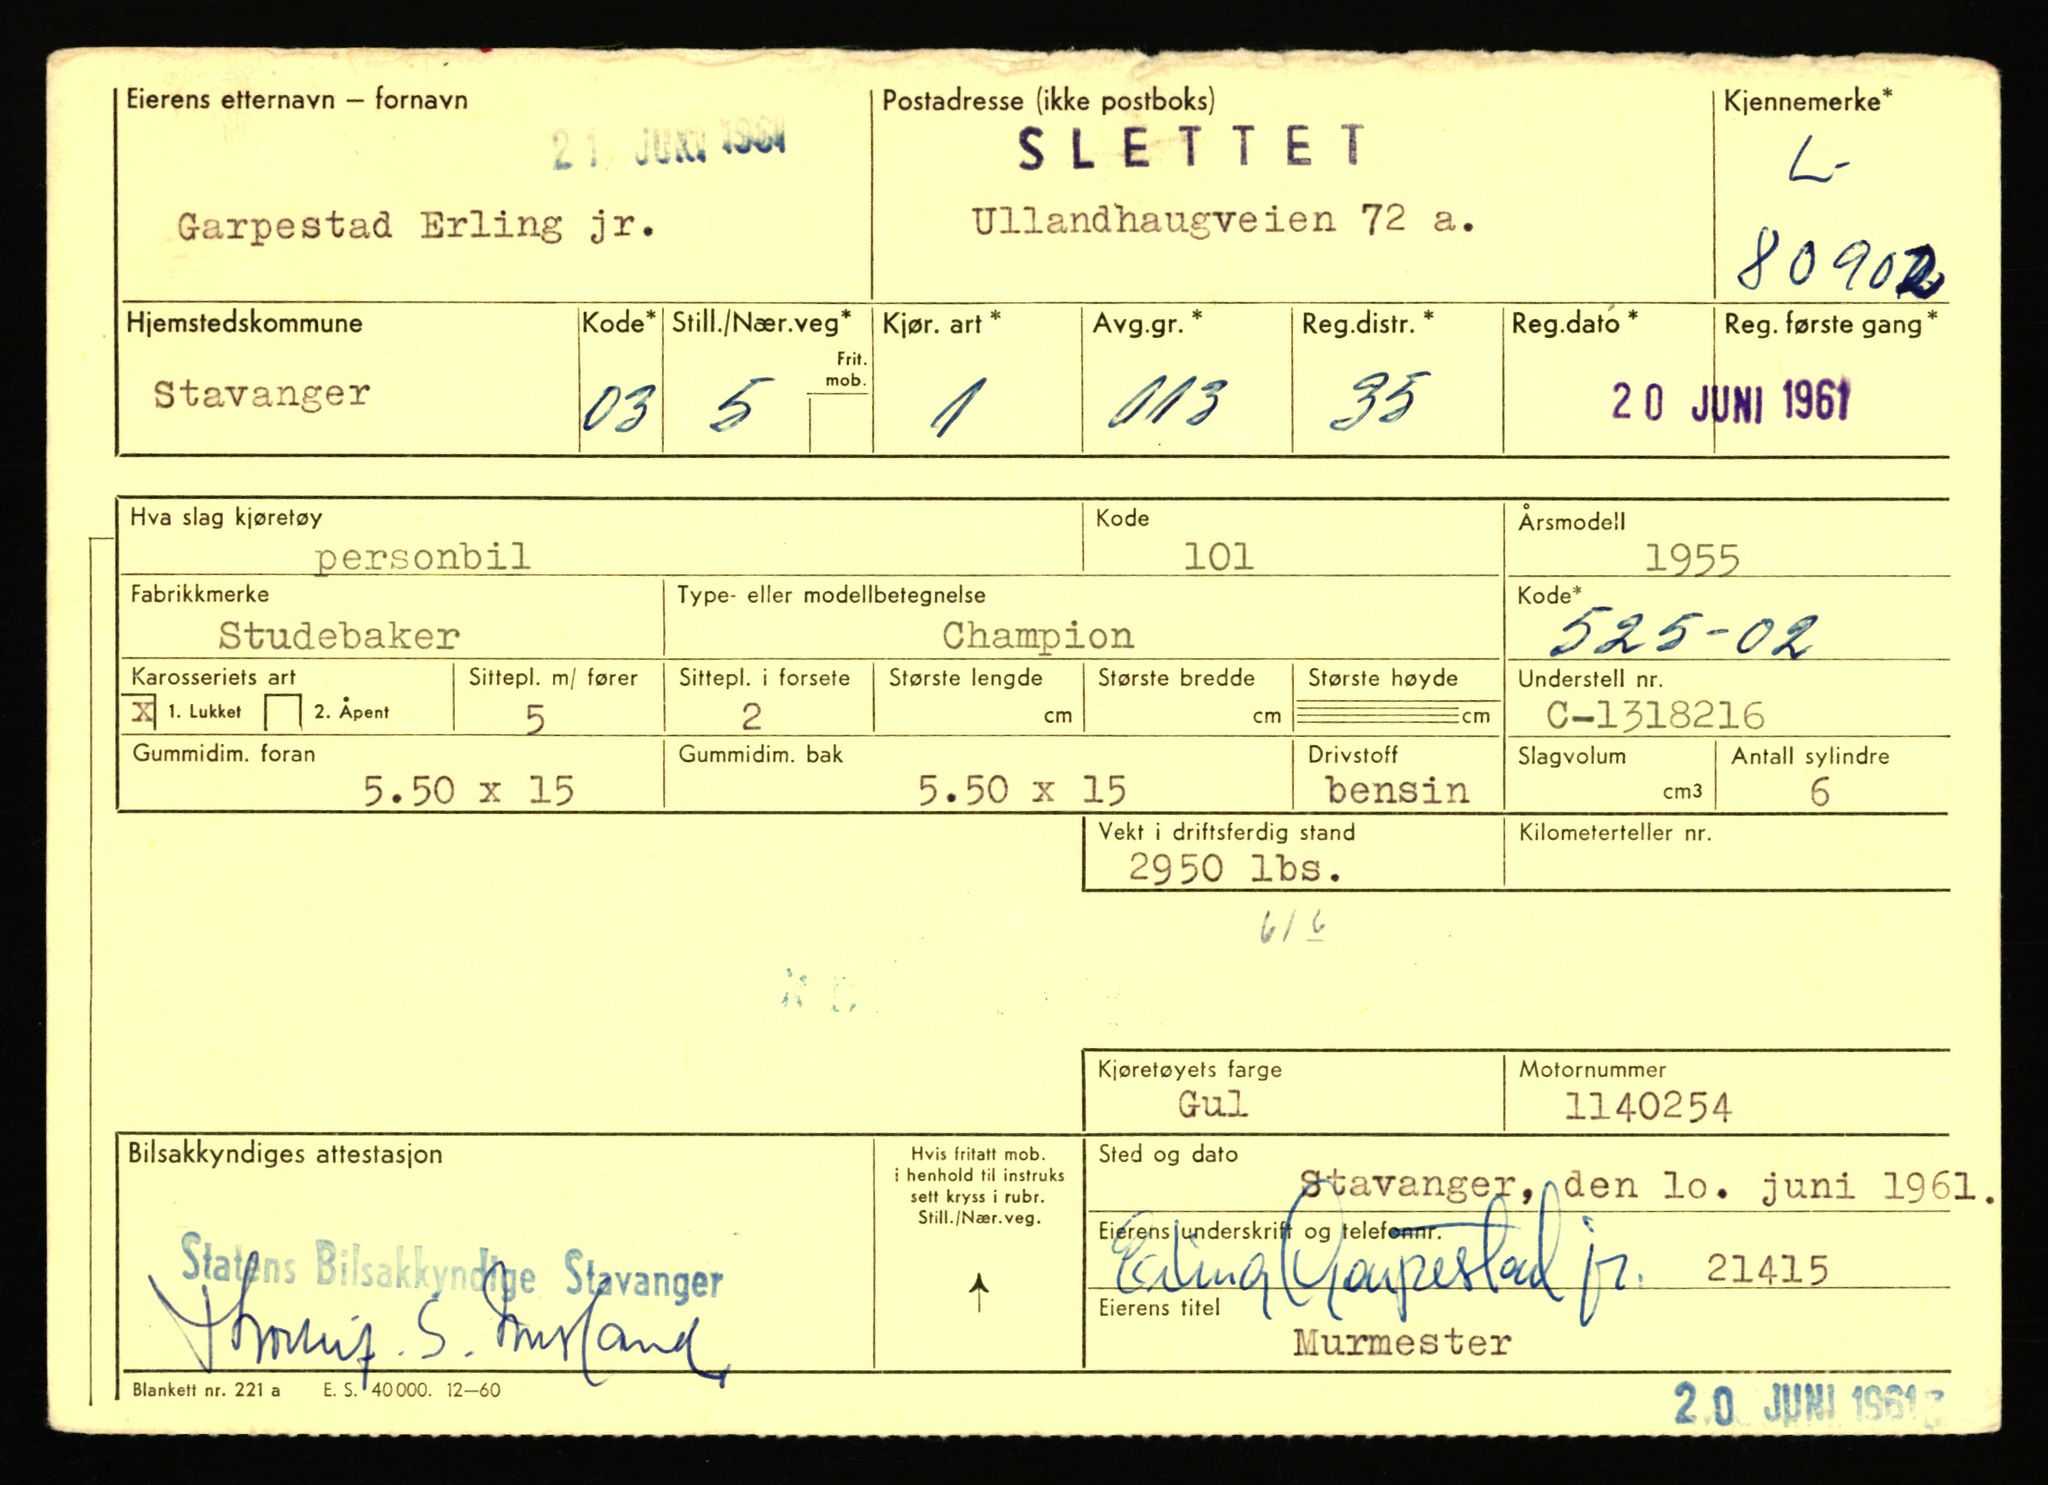 Eierens etternavn – fornavn
21 JUNI 1961
Garpestad Erling jr.
Postadresse (ikke postboks)
SLETTET
Ullandhaugveien 72 a.
Kjennemerke*
L-
80902
Hjemstedskommune
Stavanger
Kode*
03
Still./Nær.veg*
5
Frit.
mob.
Kjør. art *
1
Avg.gr. *
113
Reg.distr. *
35
Reg.dato *
Reg. første gang *
20 JUNI 1961
Hva slag kjøretøy
personbil
Kode
101
Årsmodell
1955
Fabrikkmerke
Studebaker
Type- eller modellbetegnelse
Champion
Kode*
525-02
Karosseriets art
X 1. Lukket 2. Åpent
Sittepl. m/ fører
5
Sittepl. i forsete
2
Største lengde
cm
Største bredde
cm
Største høyde
cm
Understell nr.
C-1318216
Gummidim. foran
5.50 x 15
Gummidim. bak
5.50 x 15
Drivstoff
bensin
Slagvolum
cm3
Antall sylindre
6
Vekt i driftsferdig stand
2950 lbs.
Kilometerteller nr.
6/6
Kjøretøyets farge
Gul
Motornummer
1140254
Bilsakkyndiges attestasjon
Statens Bilsakkyndige Stavanger
Hvis fritatt mob.
i henhold til instruks
sett kryss i rubr.
Still./Nær.veg.
Sted og dato
Stavanger, den 10. juni 1961.
Eierens underskrift og telefonnr.
Erling Garpestad jr. 21415
Eierens titel
Murmester
Blankett nr. 221 a E. S. 40 000. 12–60
20 JUNI 1961